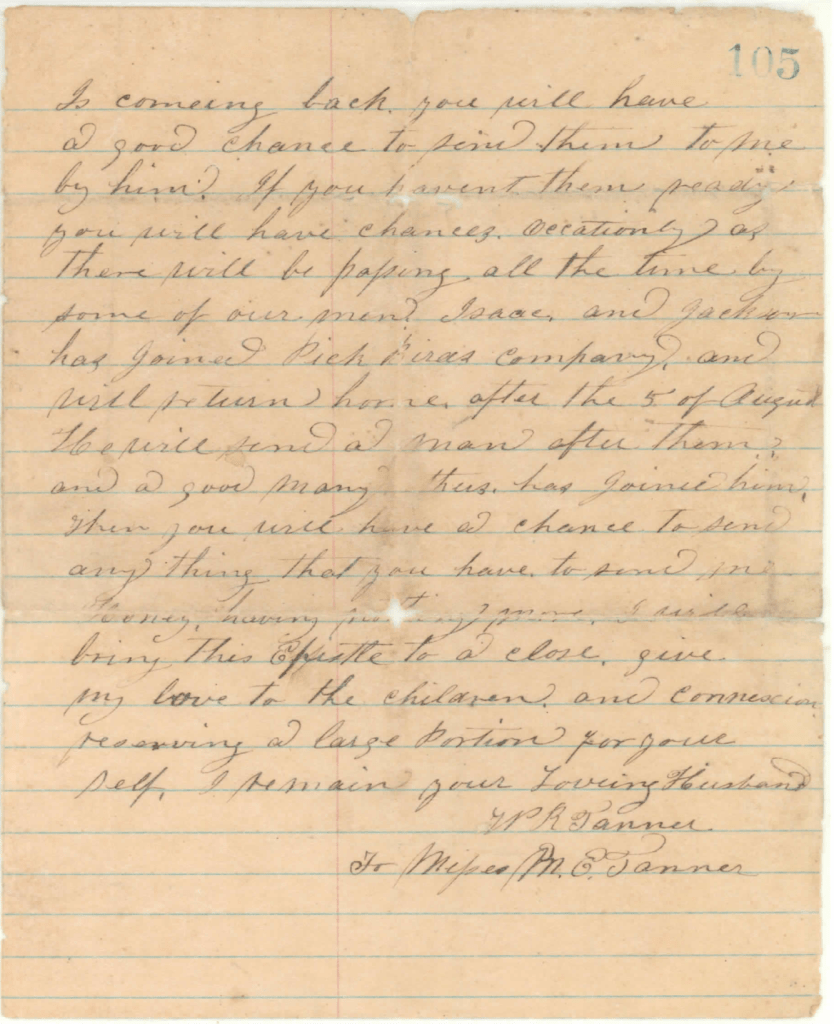 105
Is comeing back. you will have
a good chance to send them to me
by him. If you havent them ready
you will have chances. Occationly as
there will be passing all the time by
some of our men. Isaac, and Jackson
has Joined Pick Birds Company, and
will return home. after the 5 of August
He will send a man after them,
and a good many has Joined him,
Then you will have a chance to send
any thing that you have. to send me
Honey, having nothing more, I will
bring this Epistle to a close, give
my love to the children, and connexion
reserving a large Portion for your
self, I remain your Loveing Husband
W R Tanner
To Misses M. E. Tanner